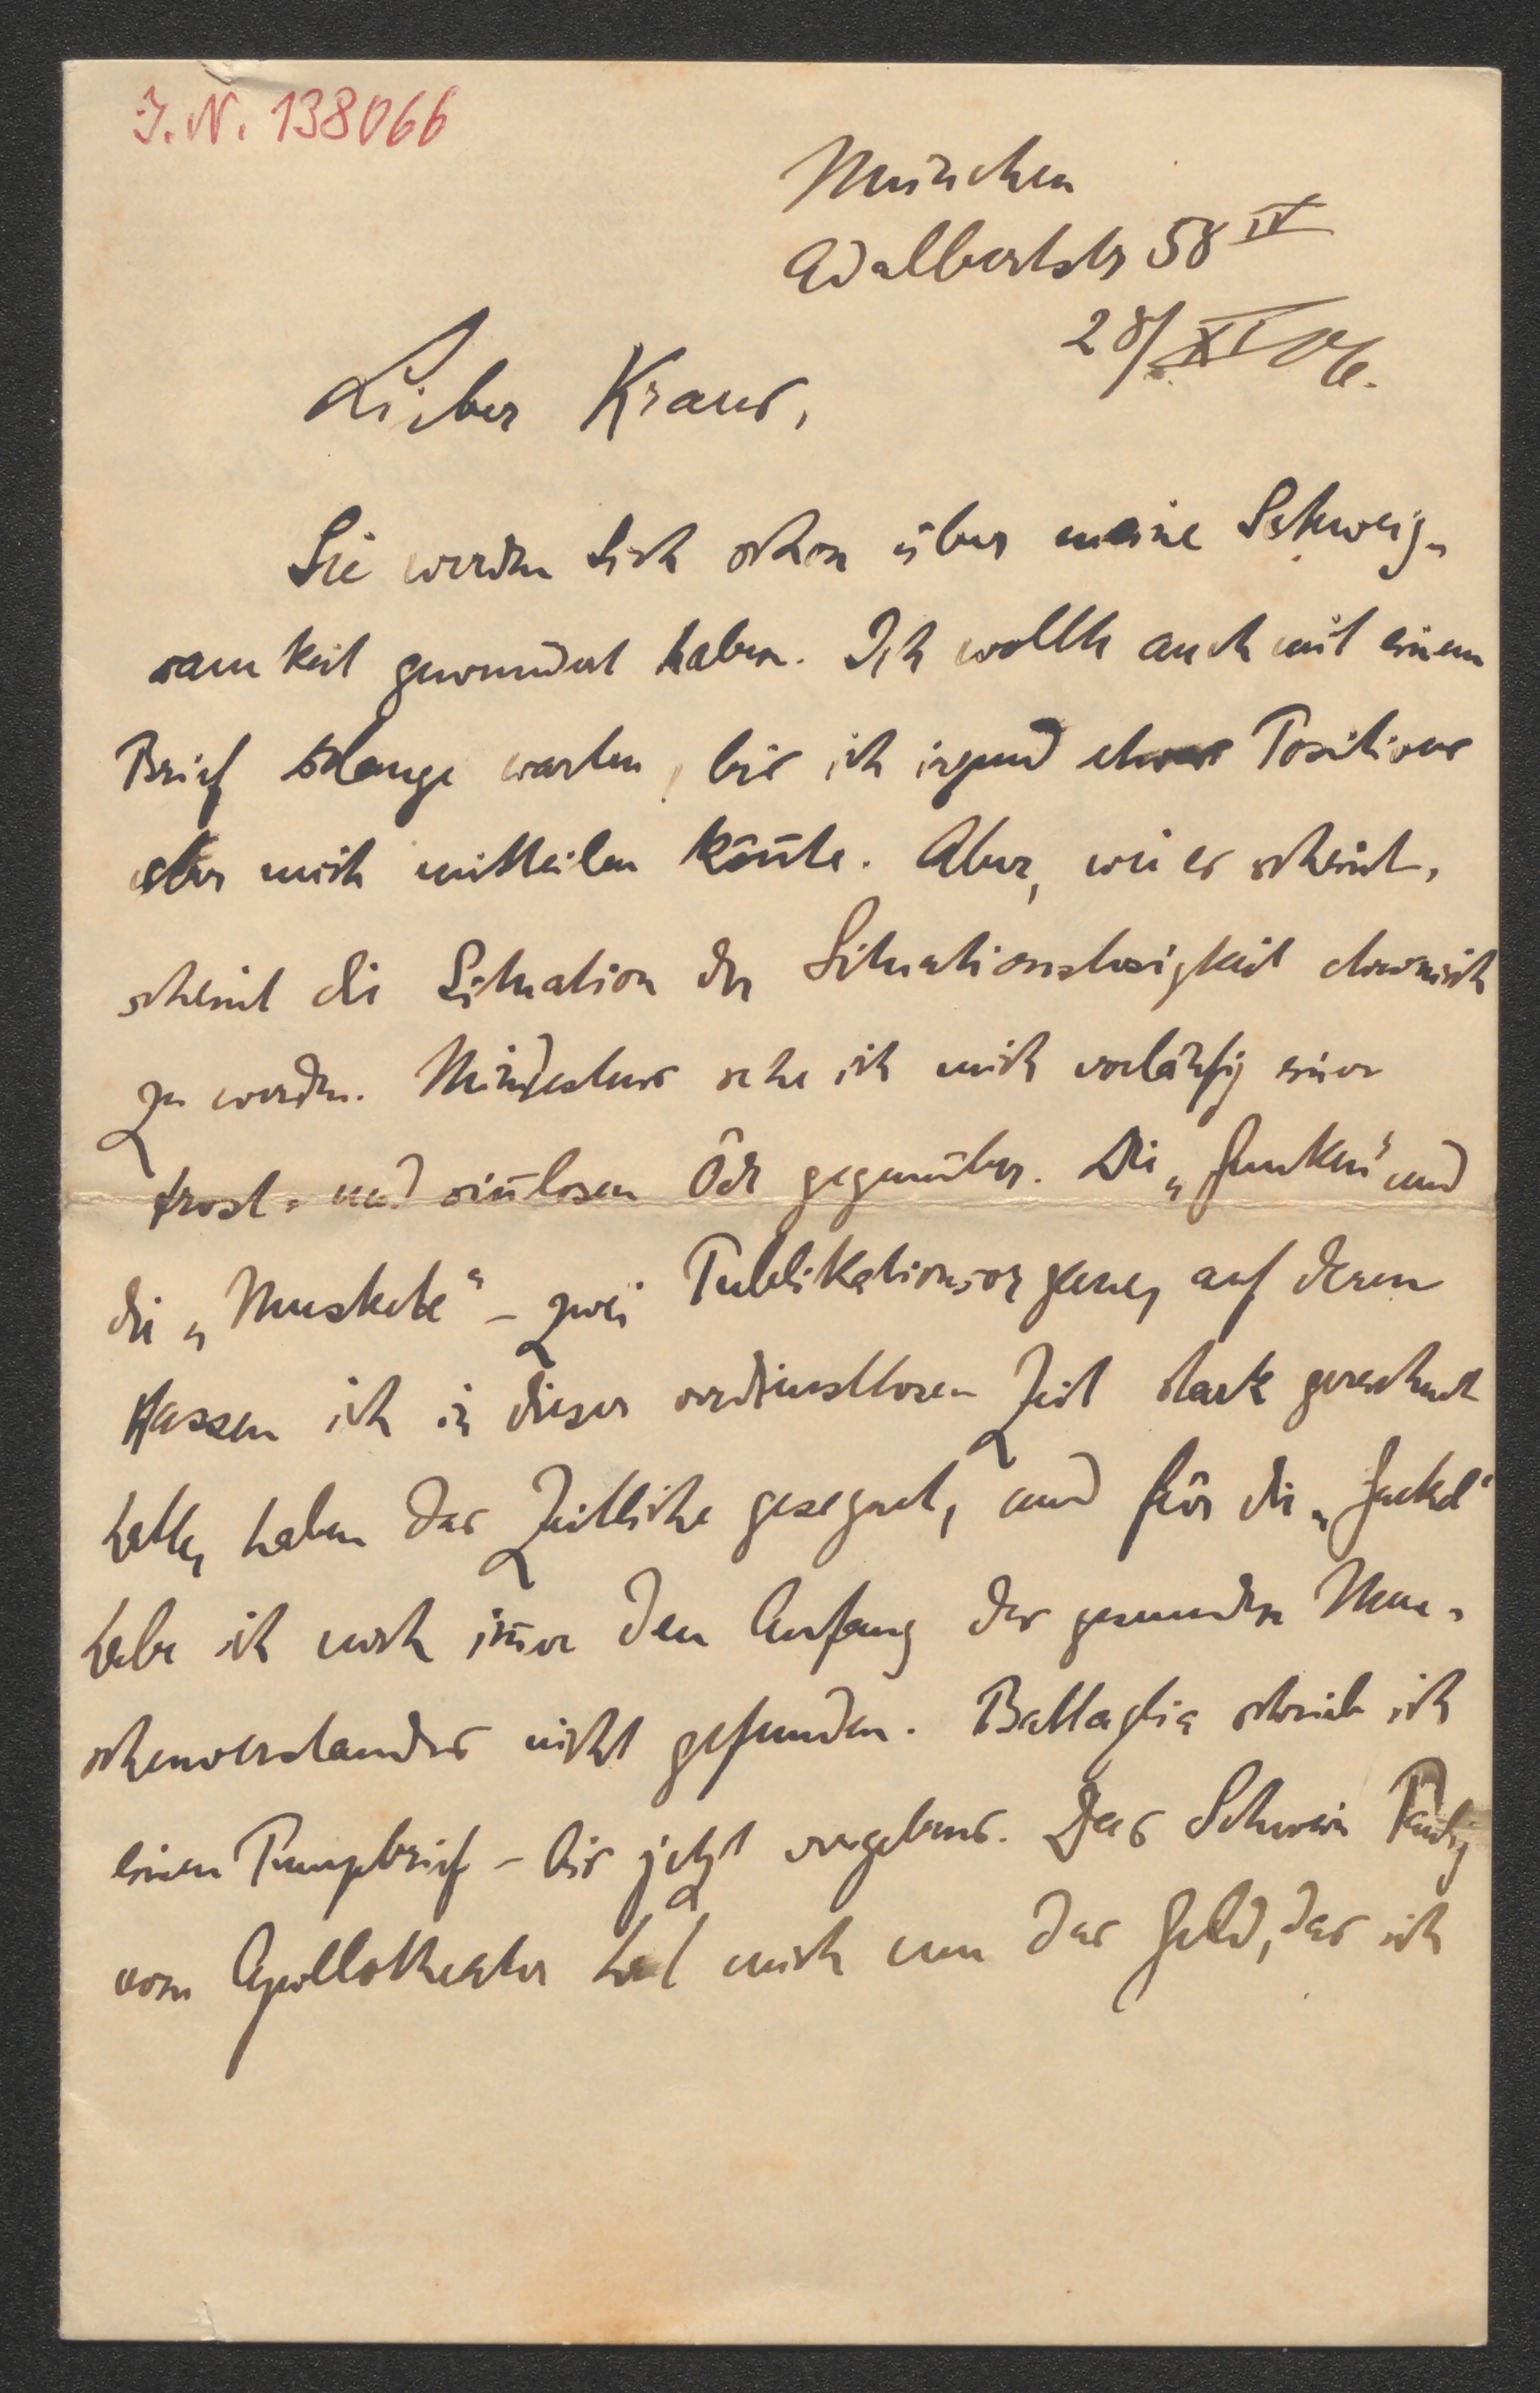 J.N. 138066
München
Adalbertstr 58 IV
28/XI 06.
Lieber Kraus,
Sie werden Sich schon über meine Schweig-
samkeit gewundert haben. Ich wollte auch mit einem
Brief solange warten, bis ich irgend etwas Positives
über mich mitteilen könnte. Aber, wie es scheint,
scheint die Situation der Situationslosigkeit chronisch
zu werden. Mindestens sehe ich mich vorläufig einer
trost- und sinnlosen Öde gegenüber. Die „Funken" und
die „Muskete" – zwei Publikationsorgane, auf deren
Kassen ich in dieser verdienstlosen Zeit stark gerechnet
hatte, haben das Zeitliche gesegnet, und für die „Fackel"
habe ich noch immer den Anfang des gesunden Men-
schenverstandes nicht gefunden. Battaglia schrieb ich
einen Pumpbrief – bis jetzt vergebens. Das Schwein
vom Apollotheater hat mich um das Geld, das ich